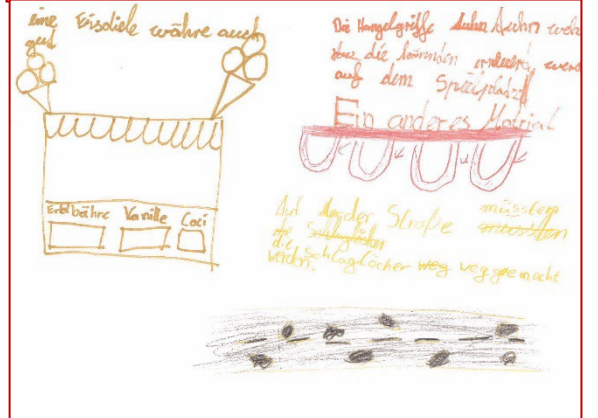 eine Eisdiele währe auch
gut
Erdbähre Vanille Coci
Die Hangelgriffe weh
die
auf dem Spielplatz
Ein anderes Matrial
Auf der Straße müssten
die Schlaglöcher weg weggemacht
werden.